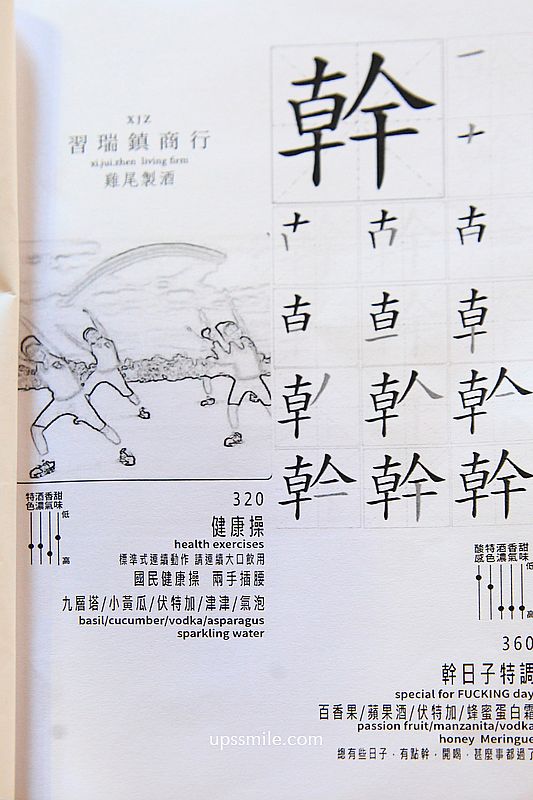 XJZ
習瑞鎮商行
xi.jui.zhen living firm
雞尾製酒
幹
特酒香甜
色濃氣味
低
高
320
健康操
health exercises
標準式連續動作 請連續大口飲用
國民健康操 兩手插腰
九層塔/小黃瓜/伏特加/津津/氣泡
basil/cucumber/vodka/asparagus
sparkling water
酸特酒香甜
感色濃氣味
低
高
360
幹日子特調
special for FUCKING day
百香果/蘋果酒/伏特加/蜂蜜蛋白霜
passion fruit/manzanita/vodka
honey Meringue
總有些日子，有點幹，開喝，甚麼事都過了
upssmile.com